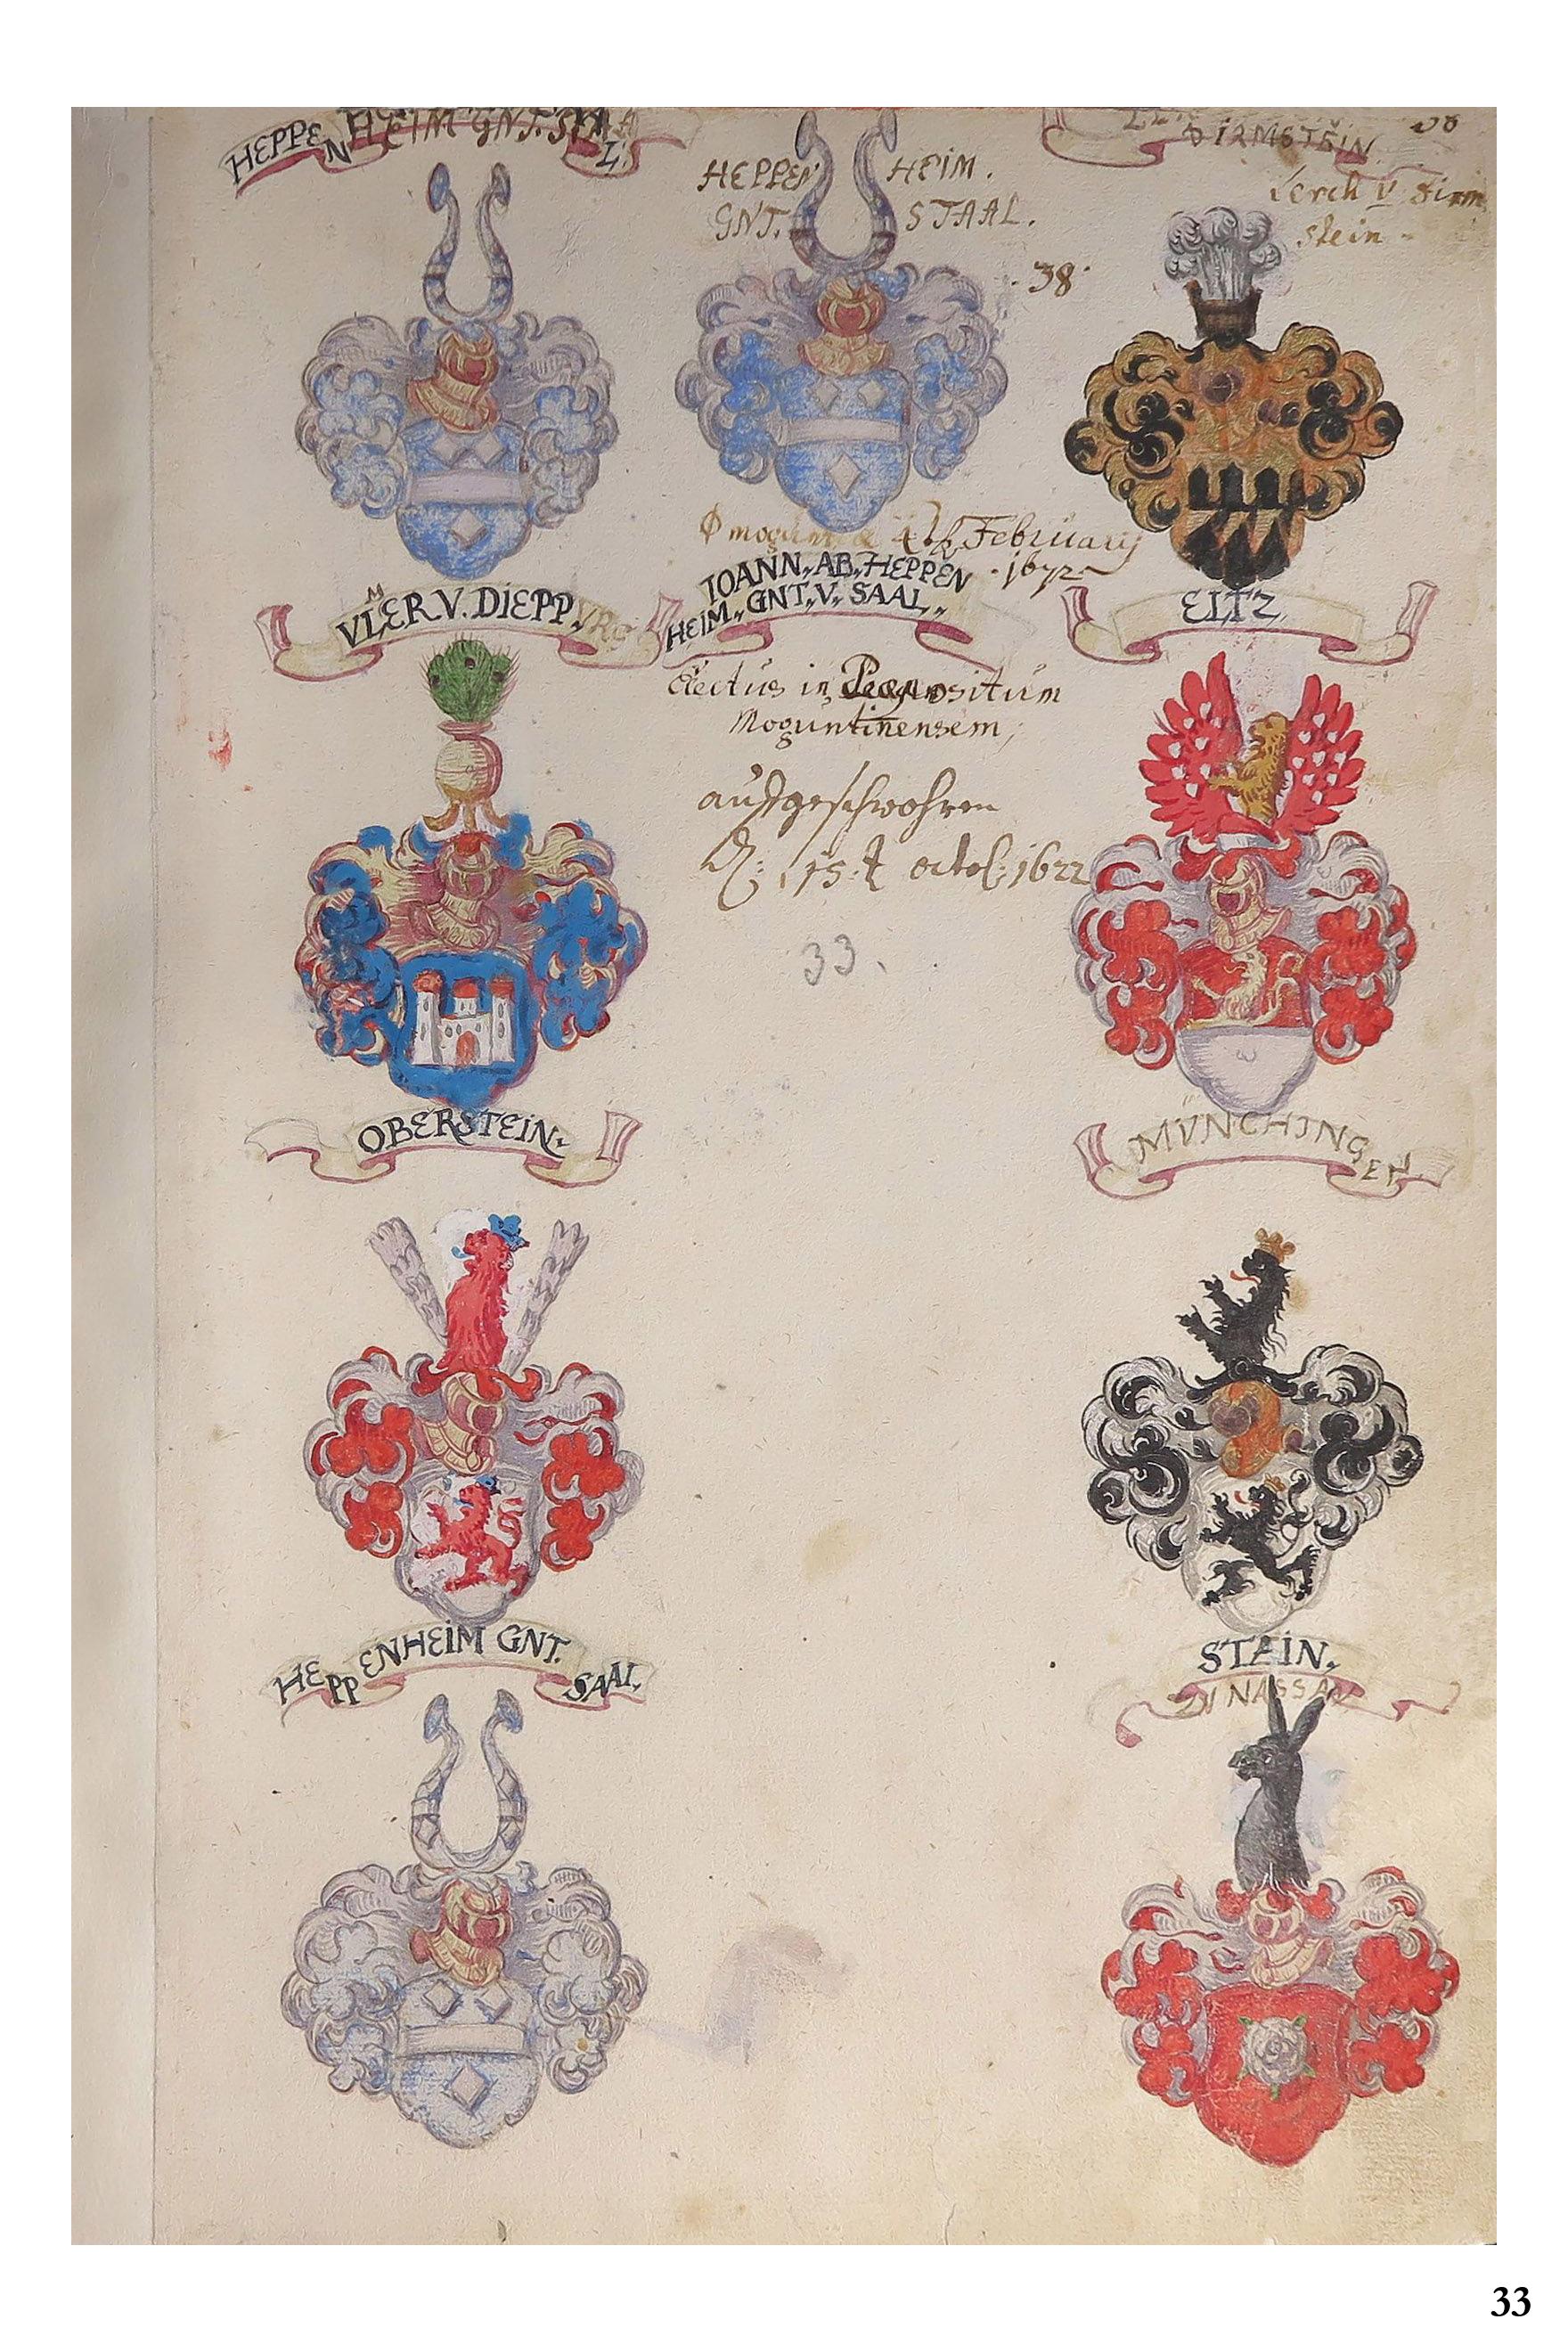 HEPPENHEIM GNT. SAAL.
HEPPEN HEIM.
GNT. STAAL.
38
DIRMSTEIN
Lerch v Dirm
stein
. 38.
Februarij
1672
VLMER V. DIEPP.
IOANN. AB. HEPPEN
HEIM. GNT. V. SAAL.
ELTZ
Electus in Praepositum
Moguntinensem;
aufgeschwohren
15 octob: 1622
33.
OBERSTEIN.
MVNCHINGEN
HEPPENHEIM GNT. SAAL.
STEIN.
ZU NASSAU
33